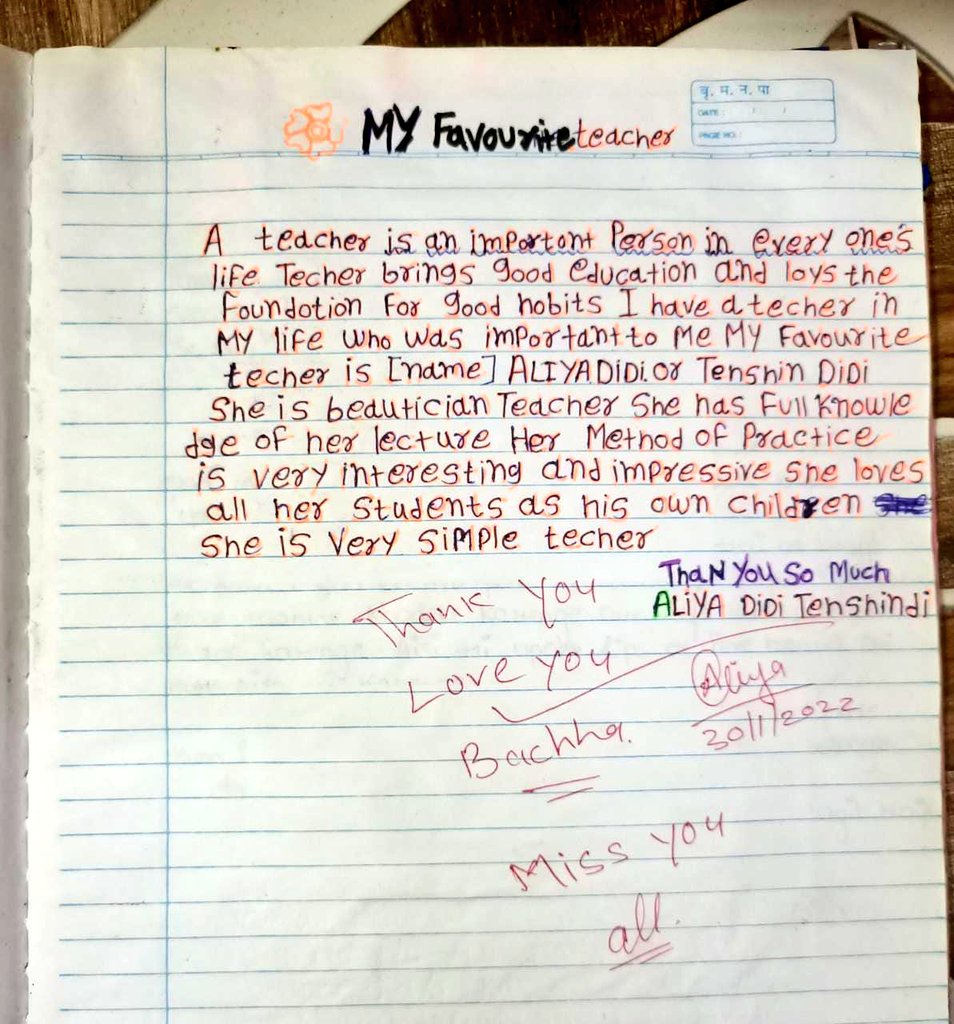 बृ. म. न. पा
DATE : / /
PAGE NO. :
MY Favourite teacher
A teacher is an important Person in every one's
life Techer brings good education and loys the
foundotion For good hobits I have a techer in
MY life who was important to Me MY Favourite
techer is [name] ALIYA DiDi. or Tenshin DiDi
She is beautician Teacher She has Full Knowle
dge of her lecture Her Method of Practice
is very interesting and impressive She loves
all her Students as his own Children
She is Very SiMPle techer
ThaN You So Much
ALiYA DiDi Tenshindi
Thank You
Love you
Bachha.
Aliya
30/1/2022
Miss you
all.